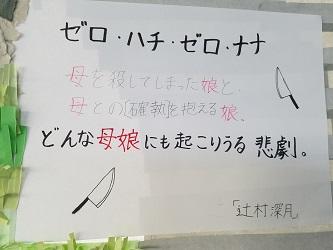 ゼロ・ハチ・ゼロ・ナナ
母を殺してしまった娘と、
母との「確執」を抱える娘、
どんな母娘にも起こりうる悲劇。
「辻村深月」